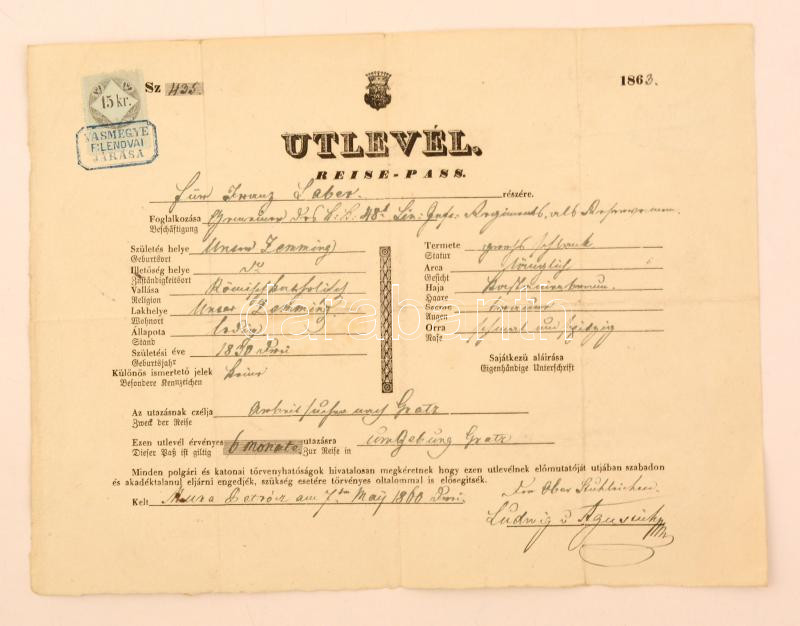 Sz 435.
1863.
15 kr.
VASMEGYE
F.LENDVAI
JÁRÁSA
UTLEVÉL.
REISE-PASS.
Für Franz Laber részére.
Foglalkozása Gemeiner des k: k: 48t Lin: Inft: Regiments, als Reservemann.
Beschäftigung
Születés helye Unter Lemming
Geburtsort
Illetőség helye do
Zuständigkeitsort
Vallása Römisch katholisch
Religion
Lakhelye Unter Lemming
Wohnort
Állapota ledig
Stand
Születési éve 1830 Drei
Geburtsjahr
Különös ismertető jelek keine
Besondere Kennzeichen
Termete groß schlank
Statur
Arca länglich
Gesicht
Haja
Haare
Szeme braun
Augen
Orra schmal und spitzig
Nase
Sajátkezü aláirása
Eigenhändige Unterschrift
Az utazásnak czélja Arbeit suchen nach Gratz
Zweck der Reise
Ezen utlevél érvényes 6 Monate utazásra Umgebung Gratz
Dieser Paß ist giltig Zur Reise in
Minden polgári és katonai törvenyhatóságok hivatalosan megkéretnek hogy ezen utlevélnek előmutatóját utjában szabadon
és akadéktalanul eljárni engedjék, szükség esetére törvényes oltalommal is elősegitsék.
Kelt Mura Petrócz am 7ten May 1860 Drei
Der Ober Stuhlrichter
Ludwig v Agustich
darabanth